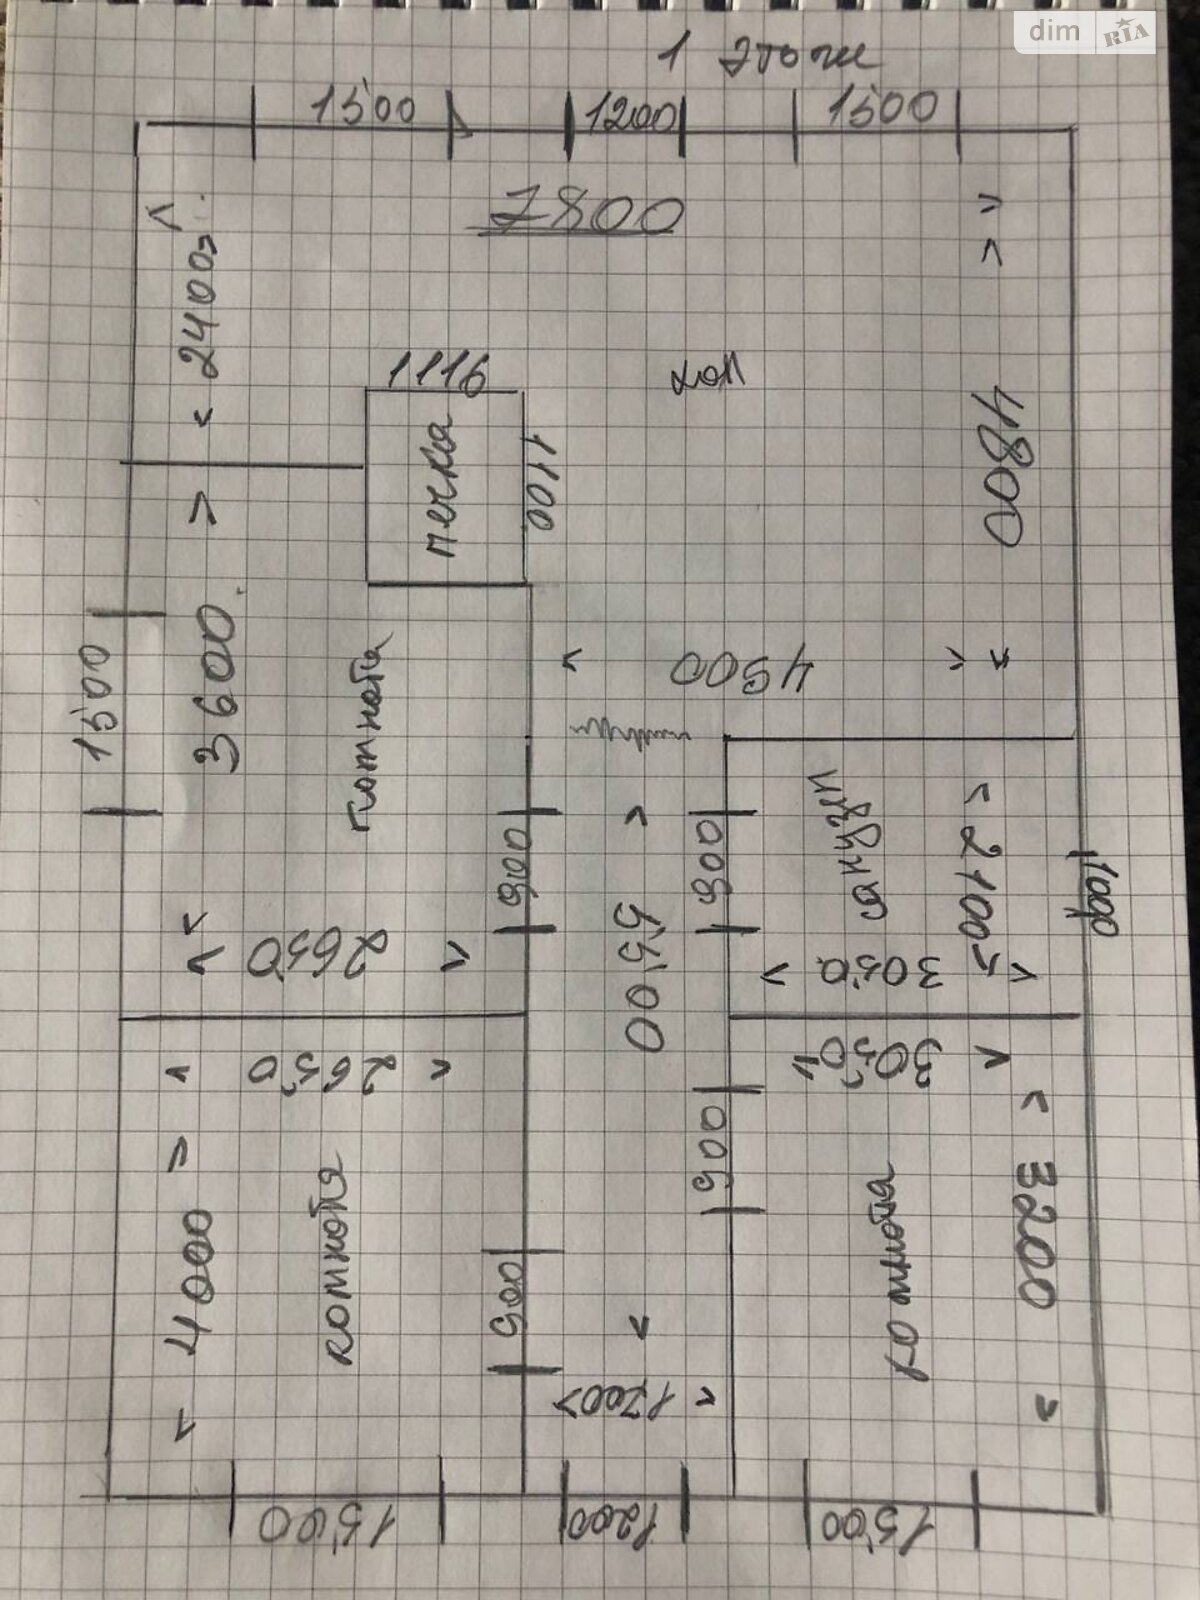 dim RIA
1 этаж
1500
1200
1500
7800
2400
1116
хол
печка
1100
4800
1500
3600
комната
4900
900
900
санузел
2100
1000
5500
2650
3050
2650
3050
900
4000
комната
900
комната
3200
1700
1500
1200
1500